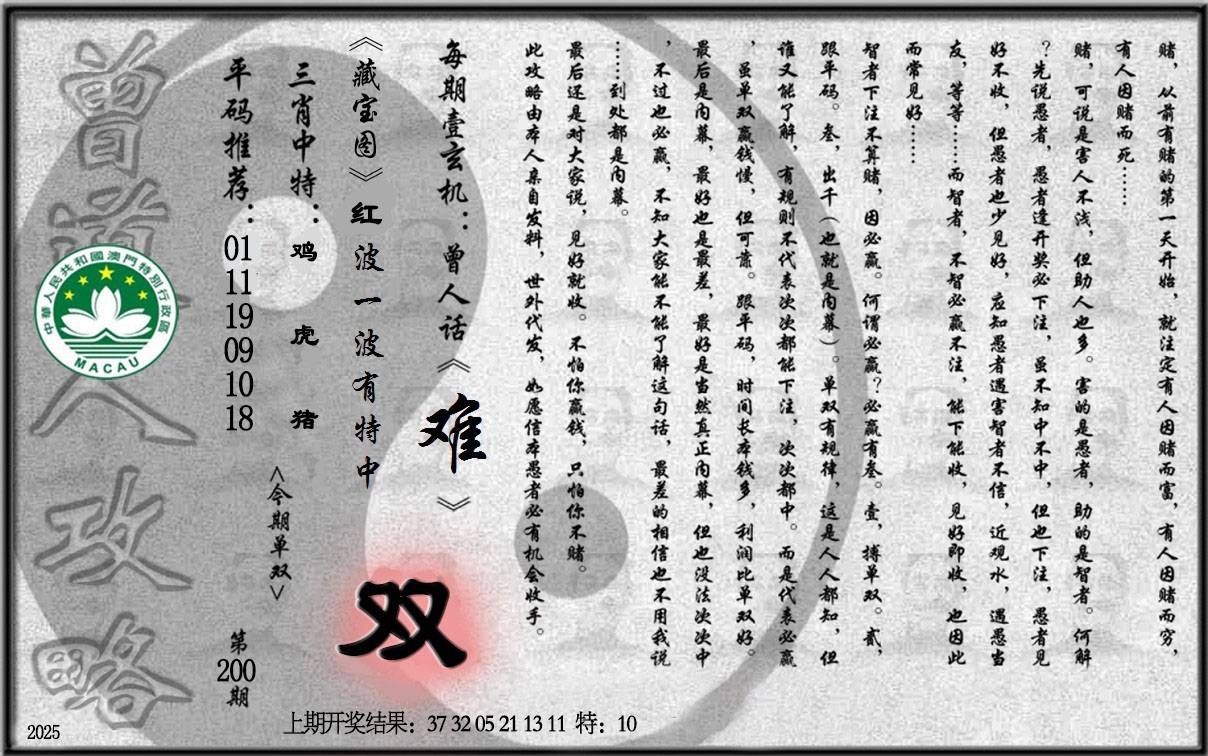 赌，从前有赌的第一天开始，就注定有人因赌而富，有人因赌而穷，
有人因赌而死……
赌，可说是害人不浅，但助人也多。害的是愚者，助的是智者。何解
？先说愚者，愚者逢开奖必下注，虽不知中不中，但也下注，愚者见
好不收，但愚者也少见好，应知愚者遇害智者不信，近观水，遇愚当
友，等等……而智者，不智必赢不注，能下能收，见好即收，也因此
而常见好……
智者下注不算赌，因必赢。何谓必赢？必赢有叁。壹，搏单双。贰，
跟平码。叁，出千（也就是内幕）。单双有规律，这是人人都知，但
谁又能了解，有规则不代表次次都能下注，次次都中。而是代表必赢
，虽单双赢钱慢，但可靠。跟平码，时间长本钱多，利润比单双好。
最后是内幕，最好也是最差，最好是当然真正内幕，但也没法次次中
，不过也必赢，不知大家能不能了解这句话，最差的相信也不用我说
……到处都是内幕。
最后还是对大家说，见好就收。不怕你赢钱，只怕你不赌。
此攻略由本人亲自发料，世外代发，如愿信本愚者必有机会收手。
每期壹玄机：曾人话《难》
《藏宝图》红波一波有特中
双
三肖中特：鸡 虎 猪
<今期单双>
平码推荐：01 11 19 09 10 18
第200期
曾道人攻略
中華人民共和國澳門特別行政區
MACAU
上期开奖结果：37 32 05 21 13 11 特：10
2025